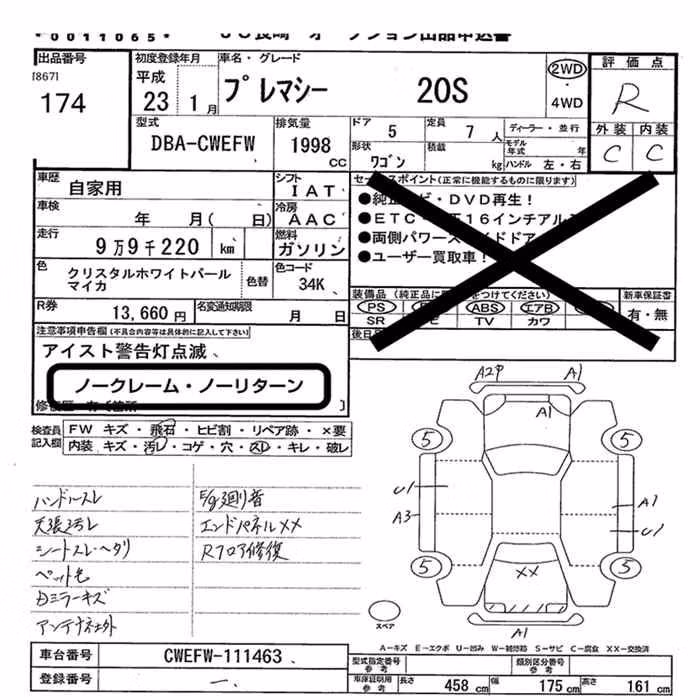 *0011065*
出品番号
[867]
174
初度登録年月
平成
23 1月
車名・グレード
プレマシー 20S
2WD
・
4WD
評価点
R
外装 内装
C C
型式
DBA-CWEFW
排気量
1998
CC
ドア
5
定員
7人
ディーラー・並行
形状
ワゴン
積載
kg
モデル年式
年
ハンドル 左・右
車歴
自家用
シフト
IAT
車検
年 月( 日)
冷房
AAC
走行
9万9千220 km
燃料
ガソリン
色
クリスタルホワイトパール
マイカ
色替
色コード
34K
R券
13,660円
名変通知期限
月 日
セールスポイント(正常に機能するものに限ります)
DVD再生!
16インチアル
●両側パワース
●ユーザー買取車!
装備品
PS
ABS
エアB
SR
TV
カワ
新車保証書
有・無
注意事項申告欄(不具合内容等は具体的に記入して下さい)
アイスト警告灯点滅
ノークレーム・ノーリターン
検査員
記入欄
FW キズ・飛石・ヒビ割・リペア跡・×要
内装 キズ・汚レ・コゲ・穴・スレ・キレ・破レ
ハンドルスレ
天張汚レ
シートスレ・ヘタリ
ペット毛
ミラーキズ
アンテナ社外
E/g廻り音
エンドパネルXX
Rフロア修復
A2P
A1
A1
5
5
U1
A3
A1
U1
5
5
XX
A1
スペア
A-キズ E-エクボ U-凹み W-補修跡 S-サビ C-腐食 XX-交換済
車台番号
CWEFW-111463
登録番号
型式指定番号
参考
類別区分番号
参考
車庫証明用
参考
長さ
458 cm
幅
175 cm
高さ
161 cm